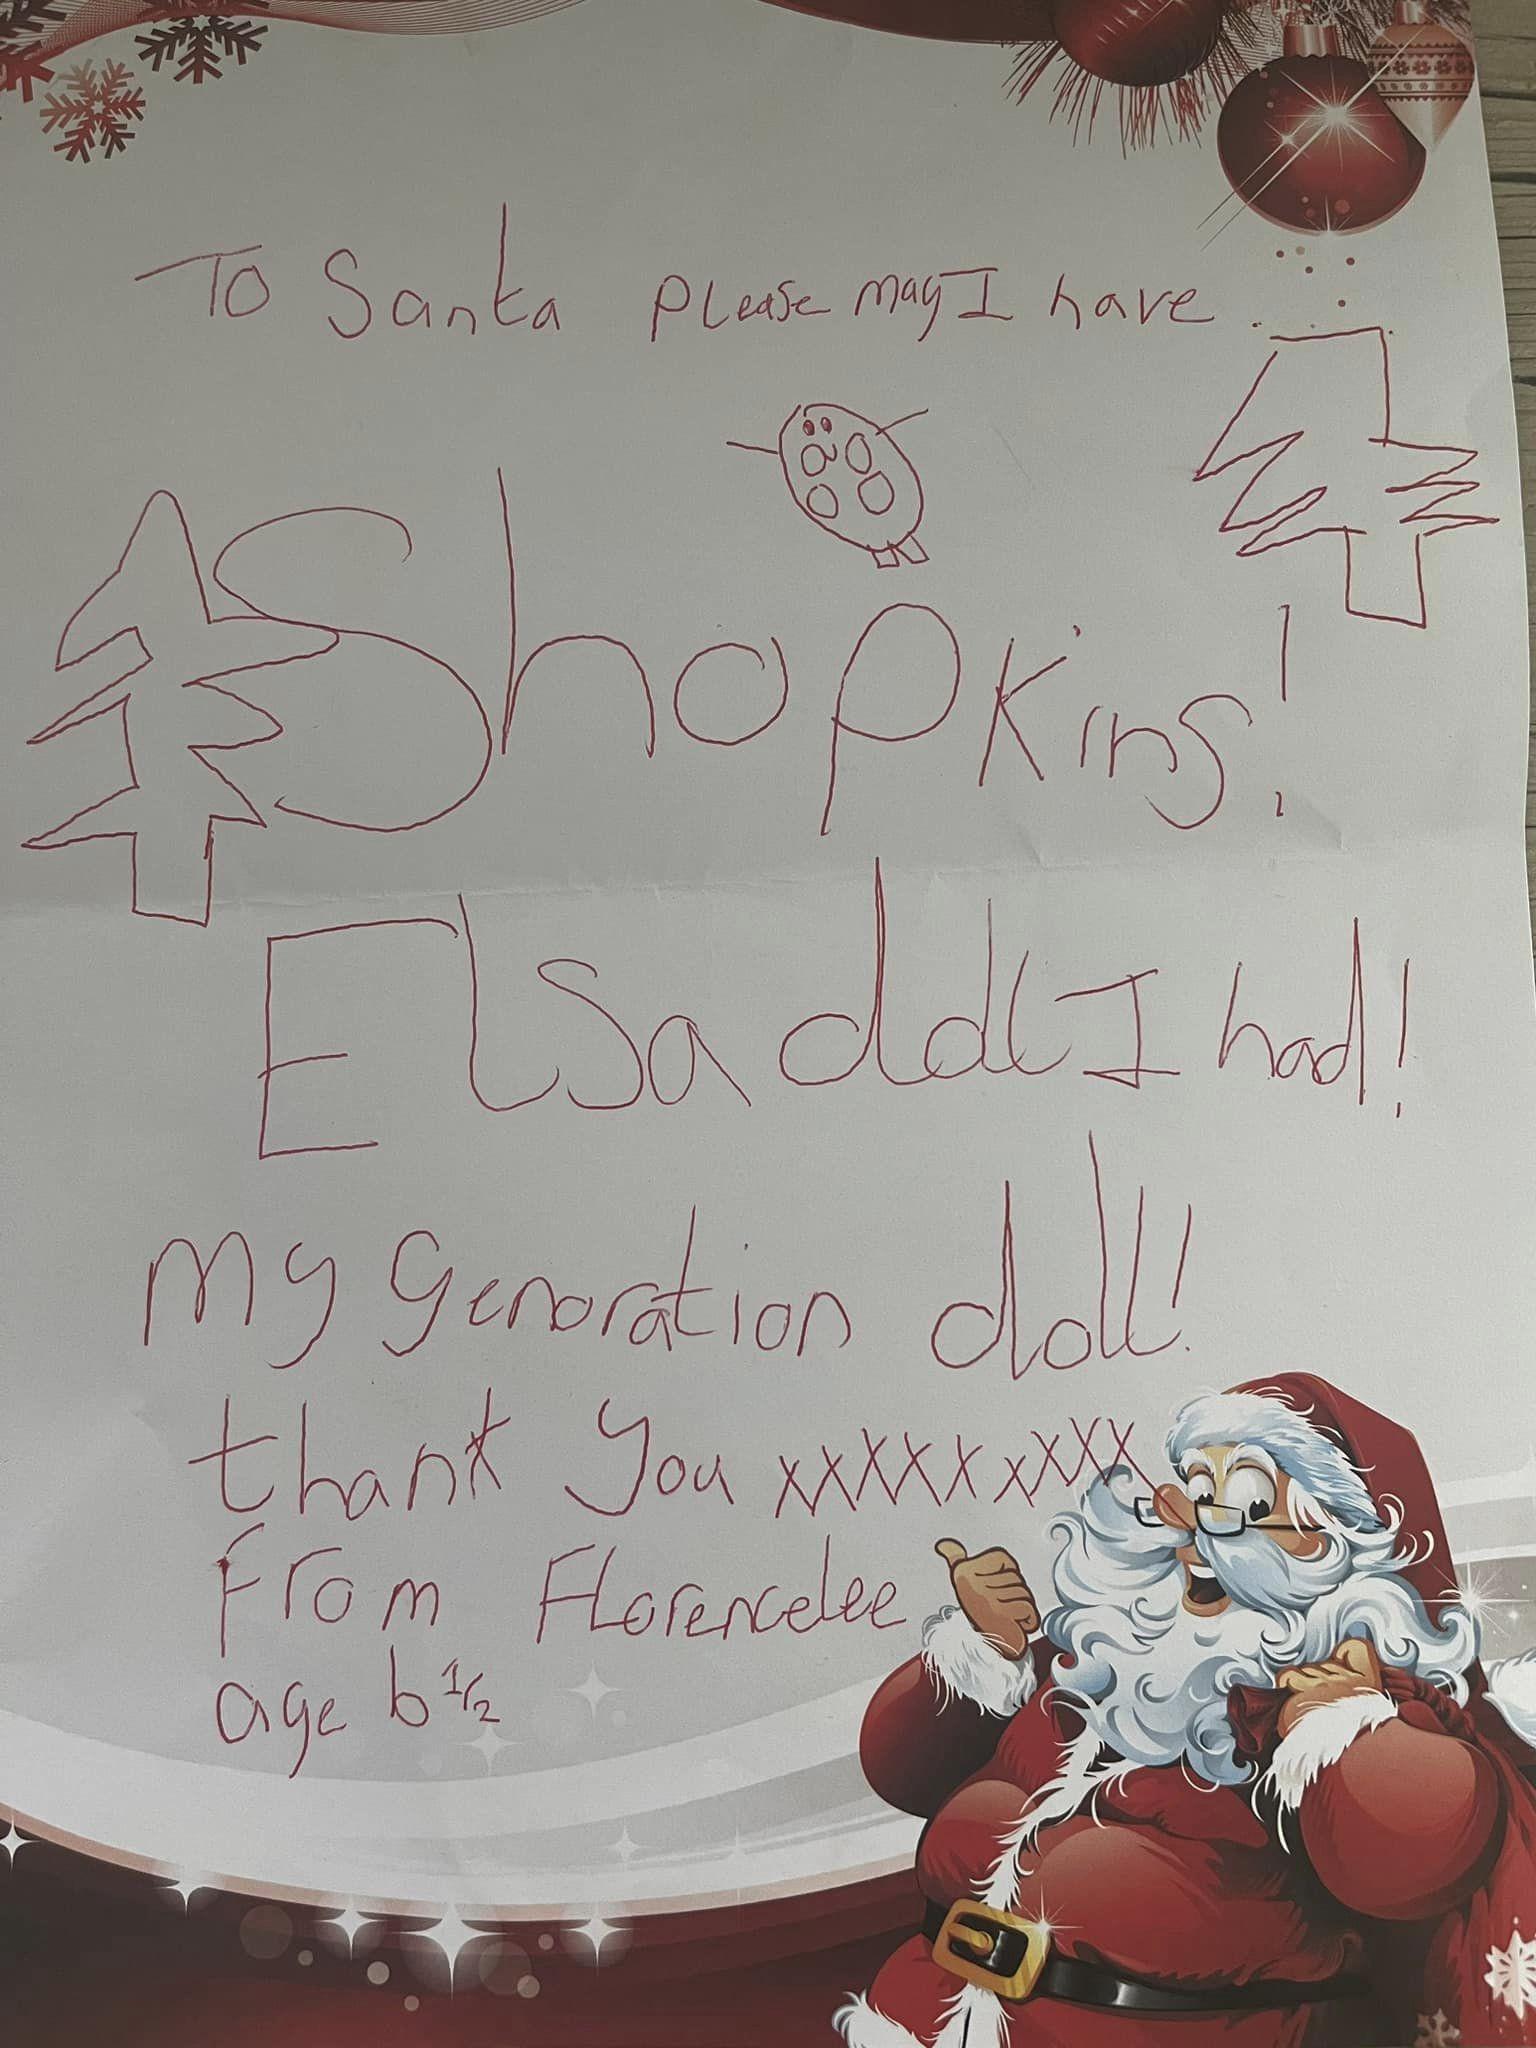 To Santa please may I have..
Shopkins!
Elsa doll I had!
My Genoration doll!
thank you xxxxxxxxx
From Florencelee
age 6 1/2